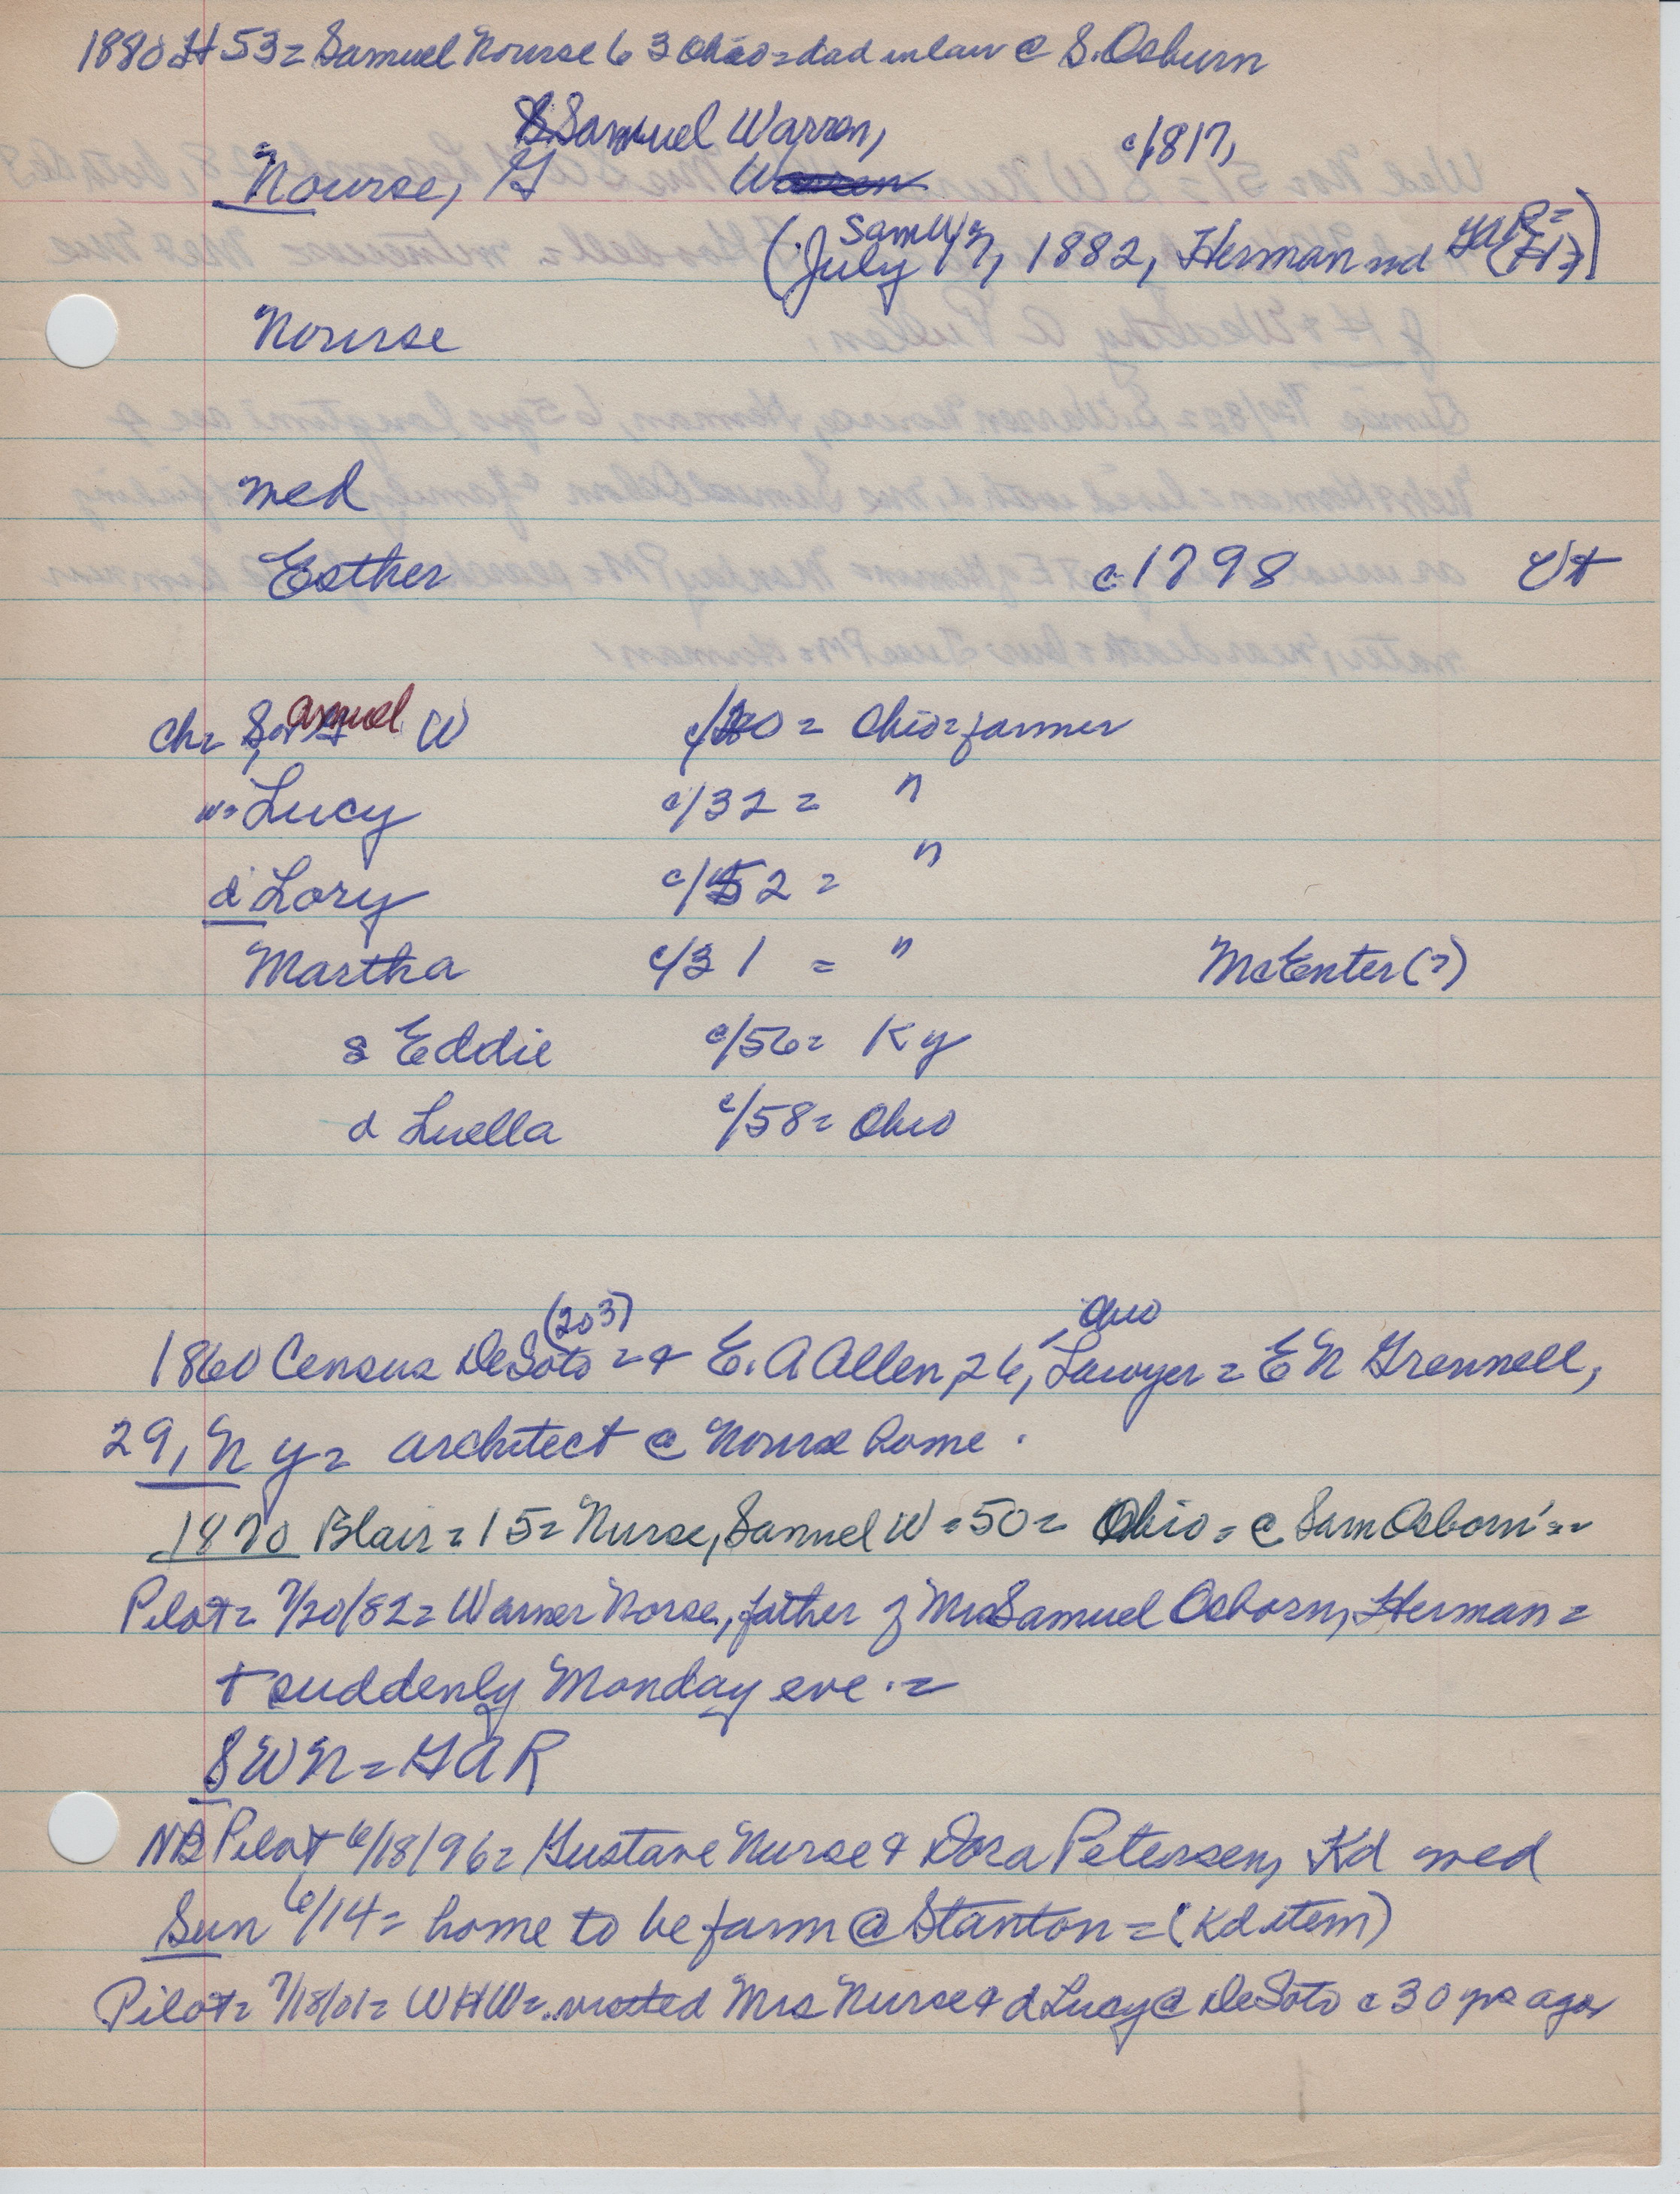 1880 H 53= Samuel Nourse 63 Ohio=dad inlaw @ S. Osburn
Samuel Warren, c/1817,
Nourse, G Warren
Samu W
(July 17, 1882, Herman md GAR= (H?)
Nourse
med
Esther c 1798 Vt
ch= Samuel W c/20 = Ohio=farmer
w= Lucy c/32 = "
d Lory c/52 = "
Martha c/31 = " McEnter(?)
s Eddie c/56= Ky
d Luella c/58= Ohio
(203) Ohio
1860 Census DeSoto =+ E. A Allen, 26, Lawyer = E N Grennell,
29, N y= architect @ Nourse home.
1870 Blair=15= Nurse, Samuel W=50= Ohio=@ Sam Osborn's=
Pilot= 7/20/82= Warner Norse, father of Mrs Samuel Osborn, Herman=
+ suddenly Monday eve.=
SWN=GAR
NB Pilot 6/18/96= Gustave Nurse & Dora Petersen, Kd med
Sun 6/14= home to be farm @ Stanton=(Kd item)
Pilot= 7/18/01= WHW= visited Mrs Nurse & d Lucy @ DeSoto c 30 yrs ago